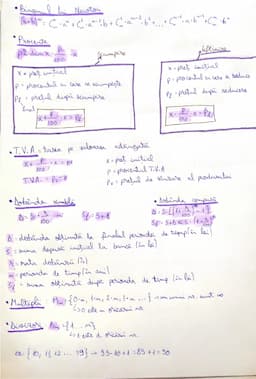 • Binomul lui Newton
(a+b)ⁿ = C⁰ₙ·aⁿ + C¹ₙ·aⁿ⁻¹·b + C²ₙ·aⁿ⁻²·b² + ... + Cⁿ⁻¹ₙ·a·bⁿ⁻¹ + Cⁿₙ·bⁿ
• Procente
p% din x = p/100 · x
scumpire
ieftinire
x = preț inițial
p = procentul cu care se scumpește
Pf = prețul după scumpire
x + p/100 · x = Pf
x = preț inițial
p = procentul cu care se reduce
Pf = prețul după reducere
x - p/100 · x = Pf
• T.V.A = taxa pe valoarea adăugată
x + p/100 · x = Pv
T.V.A. = Pv - x
x = preț inițial
p = procentul T.V.A
Pv = prețul de vânzare al produsului
• Dobânda simplă
• Dobânda compusă
D = dobânda obținută la finalul perioadei de timp (în lei)
S = suma depusă inițial la bancă (în lei)
r = rata dobânzii (%)
n = perioada de timp (în ani)
Sf = suma obținută după perioada de timp (în lei)
• Multiplii
• Divizorii
ex: {10, 11, 12 ... 99} → 99-10+1 = 89+1 = 90